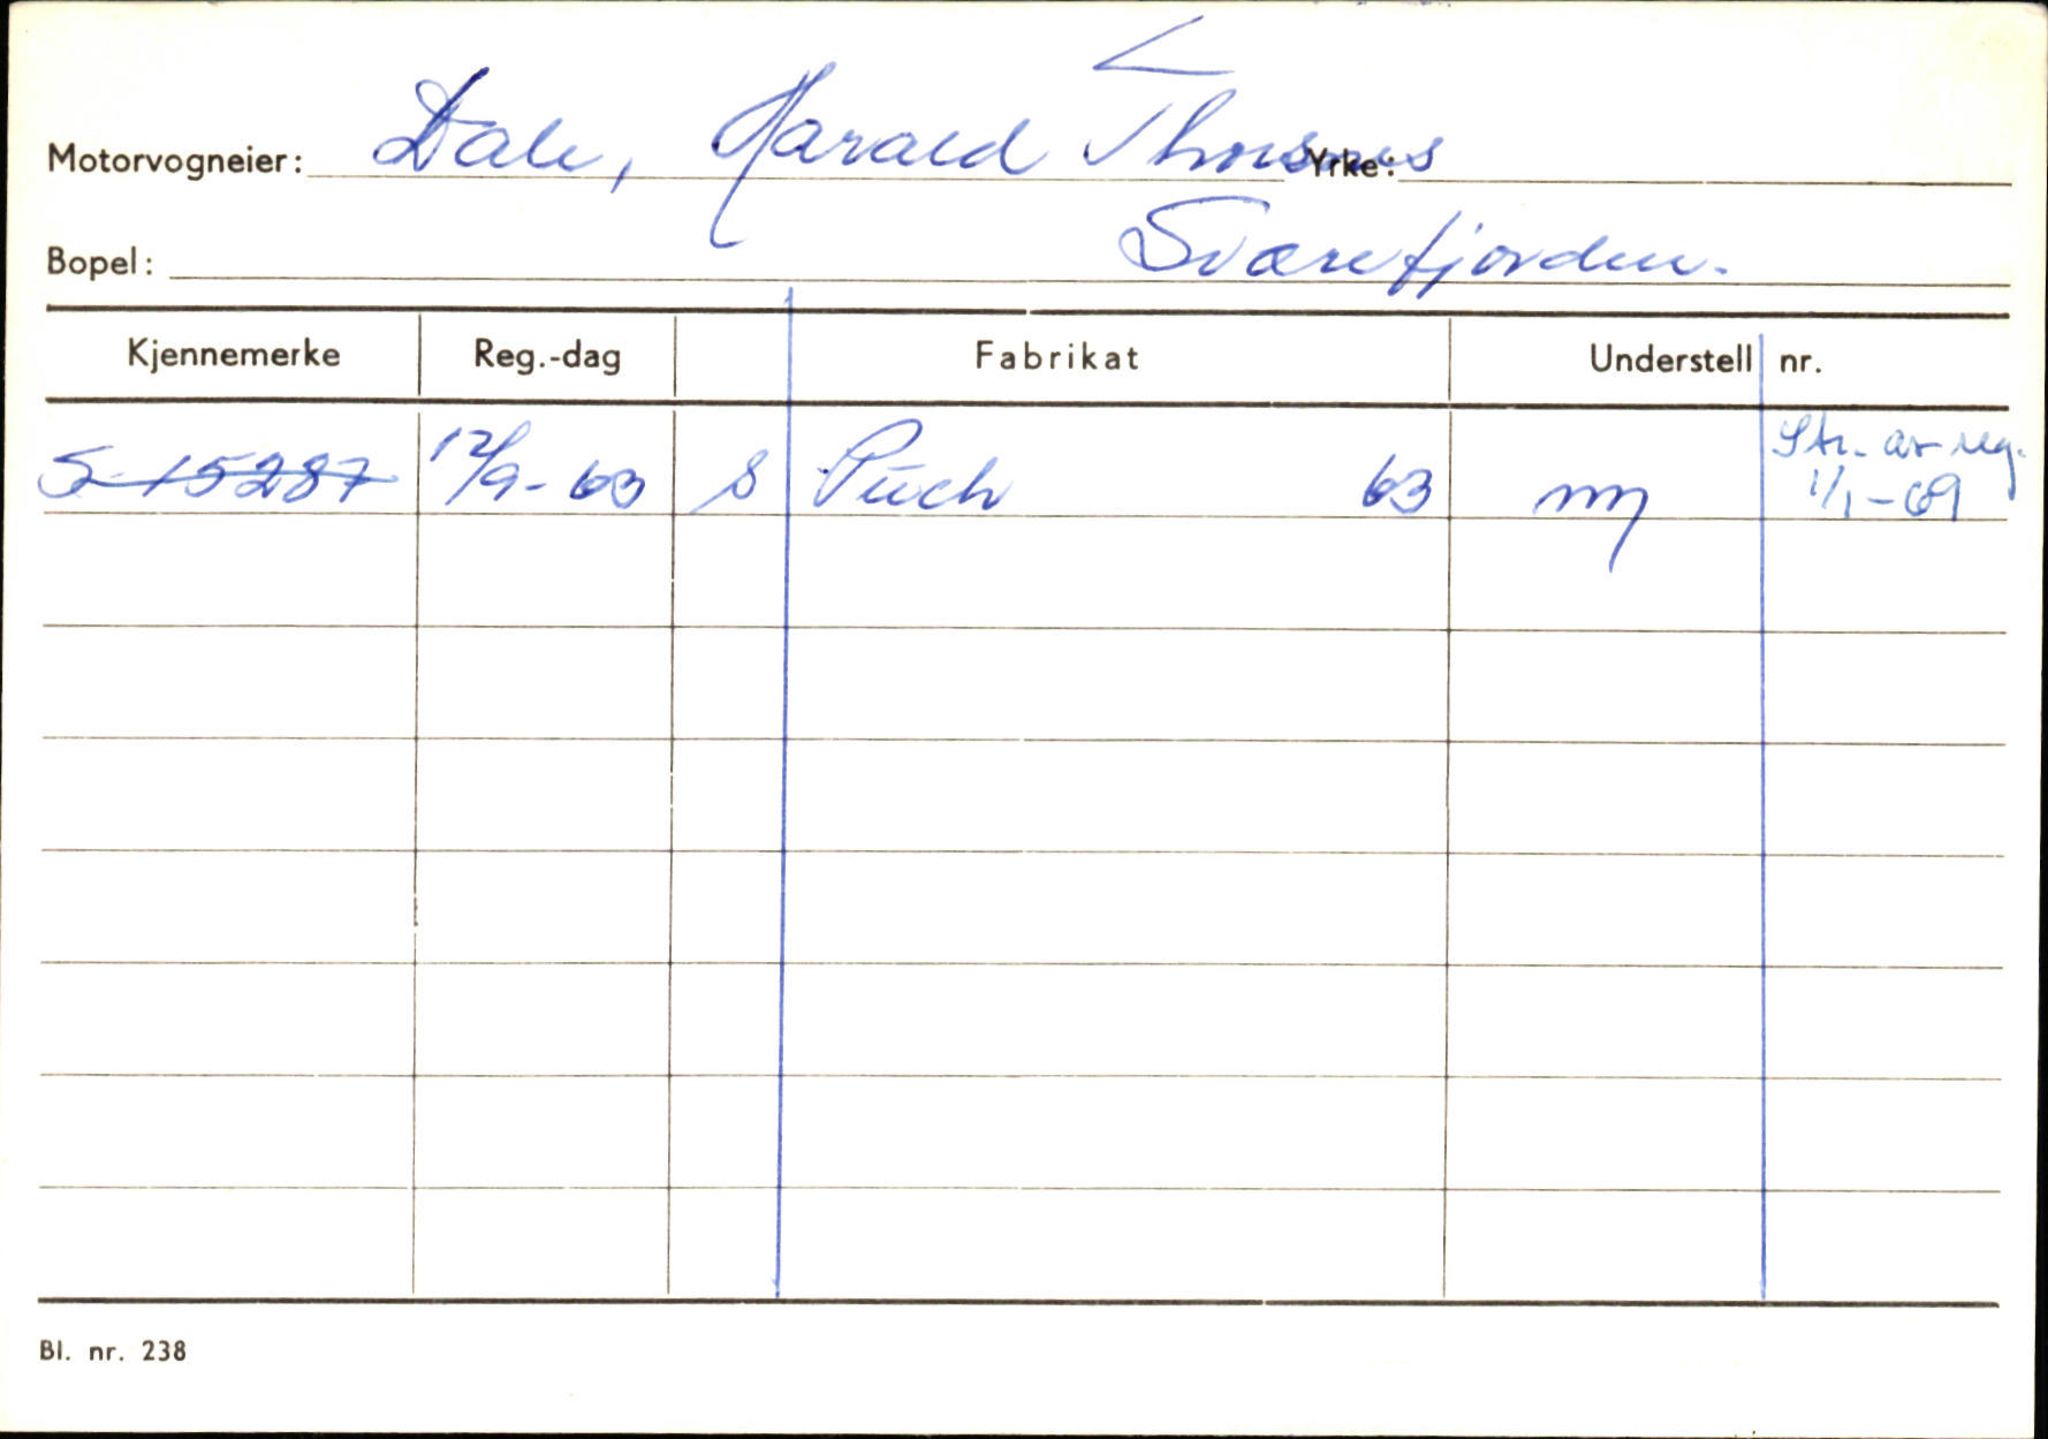 Motorvogneier: Dale, Harald Yrke:
Bopel: Sværefjorden.
Kjennemerke Reg.-dag Fabrikat Understell nr.
S-15287 12/9-63 S Puch 63 ny Str. av reg.
1/1-69
Bl. nr. 238